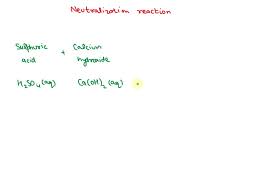 Neutralization reaction
Sulphuric + Calcium
acid hydroxide
H₂SO₄(aq) Ca(OH)₂(aq)